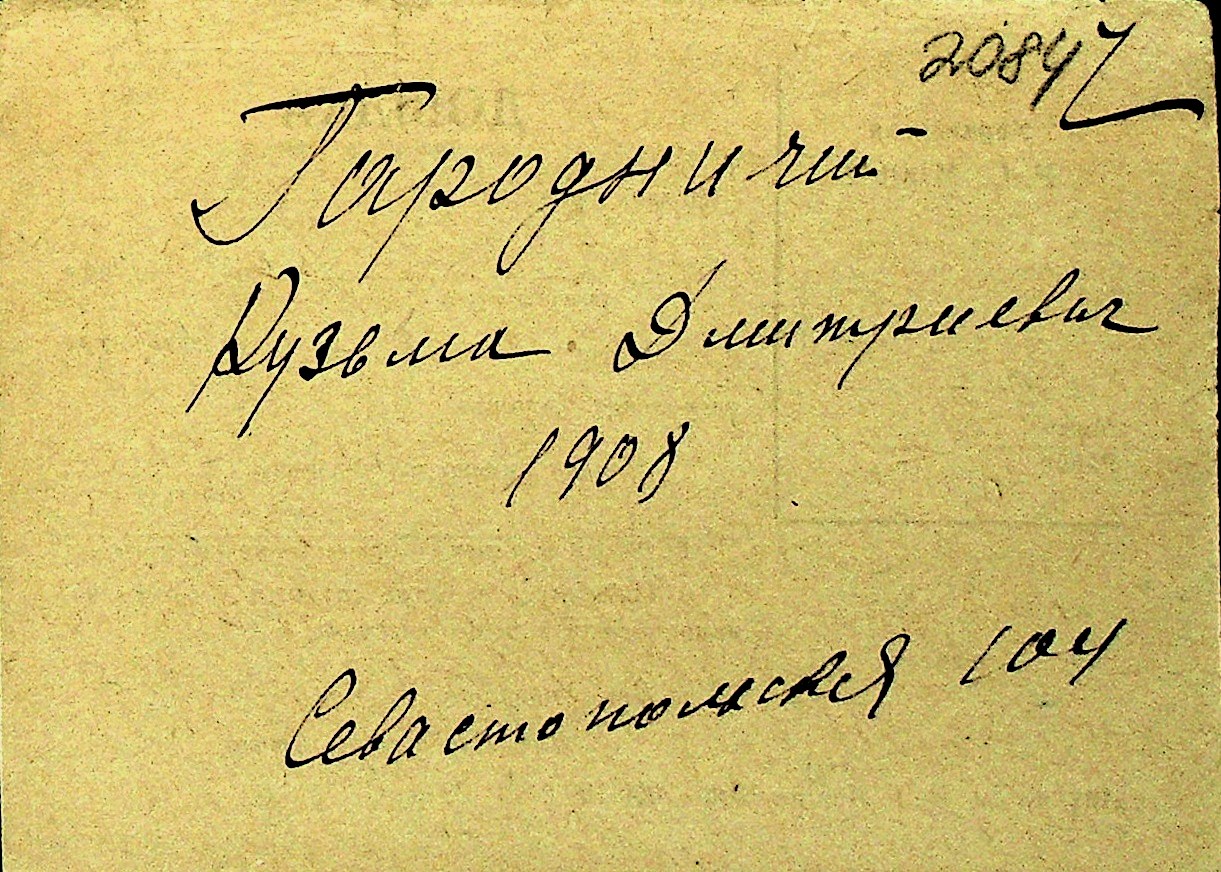 20847
Городничий
Кузьма Дмитриевич
1908
Севастопольская 104